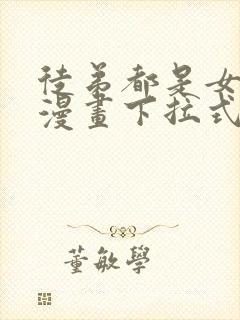 徒弟都是女
漫畫下拉式
董敏學